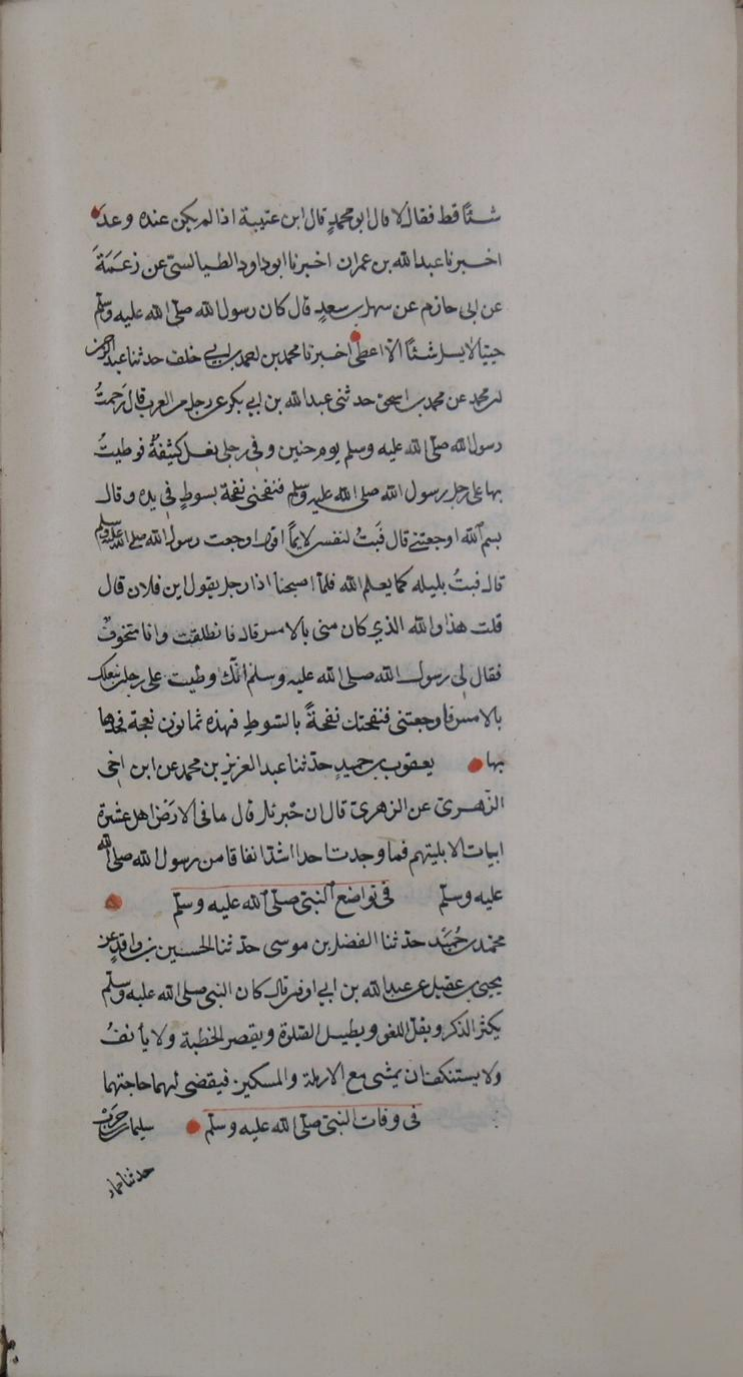 شئا قط فقال لا قال ابو محمد قال ابن عتيبة اذا لم يكن عنده وعد
اخبرنا عبد الله بن عمران اخبرنا ابو داود الطيالسي عن زعمة
عن ابى حازم عن سهل بن سعد قال كان رسول الله صلى الله عليه وسلم
حييا لا يسل شئا الا اعطى اخبرنا محمد بن احمد بن ابي خلف حدثنا عبد الرحمن
بن محمد عن محمد بن اسحق حدثنى عبد الله بن ابي بكر عن رجل من العرب قال زحمت
رسول الله صلى الله عليه وسلم يوم حنين وفى رجلى نعل كثيفة فوطيت
بها على رجل رسول الله صلى الله عليه وسلم فنفحنى نفحة بسوط فى يده وقال
بسم الله اوجعتنى قال فبت لنفسى لايما اقول اوجعت رسول الله صلى الله عليه وسلم
قال فبت بليله كما يعلم الله فلما اصبحنا اذا رجل يقول اين فلان قال
قلت هذا والله الذي كان منى بالامس قال فانطلقت وانا متخوف
فقال لى رسول الله صلى الله عليه وسلم انك وطيت على رجلى بنعلك
بالامس فاوجعتنى فنفحتك نفحة بالسوط فهذه ثمانون نعجة فخذها
بها يعقوب بن حميد حدثنا عبد العزيز بن محمد عن ابن اخى
الزهرى عن الزهرى قال ان جبرئل قال ما فى الارض اهل عشرة
ابيات الا بليتهم فما وجدت احدا اشد انفاقا من رسول الله صلى الله
عليه وسلم فى تواضع النبى صلى الله عليه وسلم
محمد بن حميد حدثنا الفضل بن موسى حدثنا الحسين بن واقد عن
يحيى بن عقيل عن عبد الله بن ابي اوفى قال كان النبى صلى الله عليه وسلم
يكثر الذكر ويقل اللغو ويطيل الصلاة ويقصر الخطبة ولا يأنف
ولا يستنكف ان يمشى مع الارملة والمسكين فيقضى لهما حاجتهما
فى وفات النبى صلى الله عليه وسلم سليمان بن حرب
حدثنا حماد